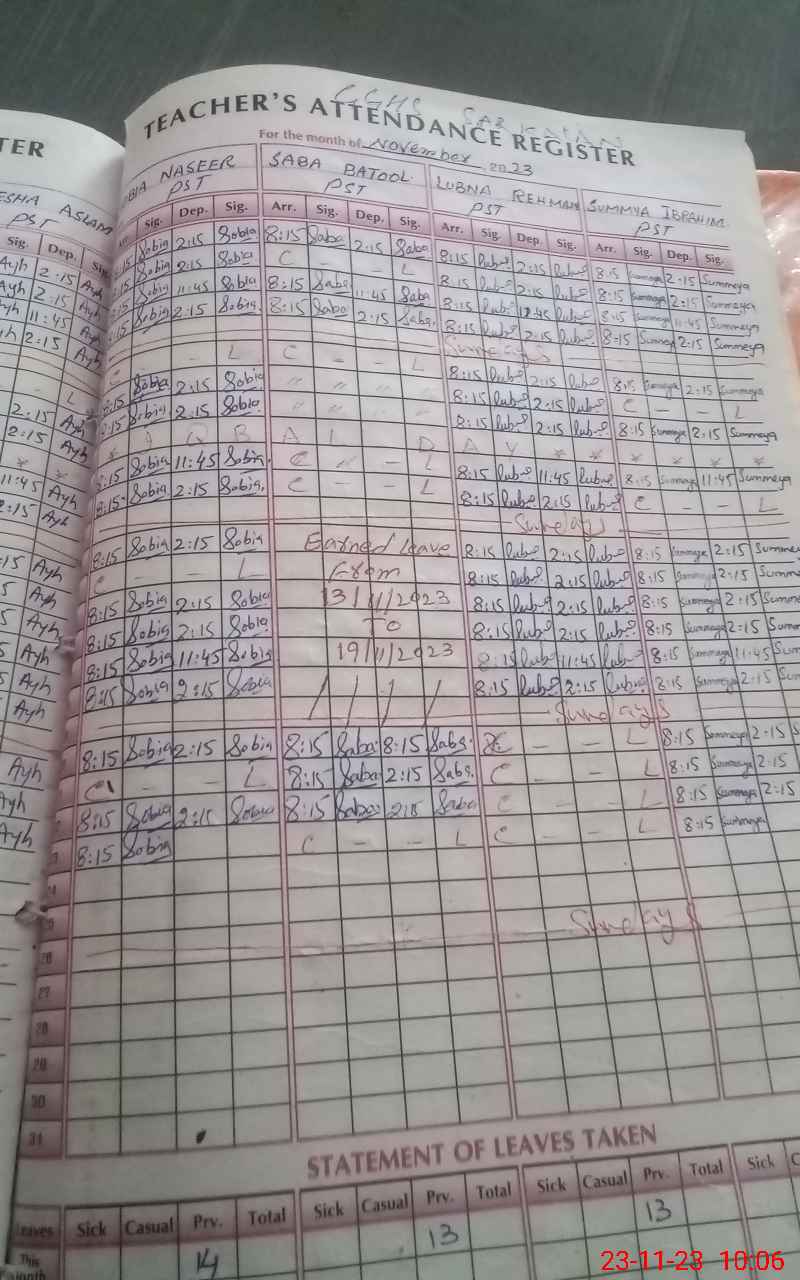 GGHS SARKALAN
TER TEACHER'S ATTENDANCE REGISTER
For the month of November 2023
ESHA ASLAM BIA NASEER SABA BATOOL LUBNA REHMAN SUMMYA IBRAHIM
PST PST PST PST PST
Sig. Dep. Sig. Arr. Sig. Dep. Sig. Arr. Sig. Dep. Sig. Arr. Sig. Dep. Sig. Arr. Sig. Dep. Sig.
Ayh 2:15 Ayh :15 Sobia 2:15 Sobia 8:15 Saba 2:15 Saba 8:15 Lubna 2:15 Lubna 8:15 Summeya 2:15 Summeya
Ayh 2:15 Ayh :15 Sobia 2:15 Sobia C - - L 8:15 Lubna 2:15 Lubna 8:15 Summeya 2:15 Summeya
Ayh 11:45 Ayh :15 Sobia 11:45 Sobia 8:15 Saba 11:45 Saba 8:15 Lubna 11:45 Lubna 8:15 Summeya 11:45 Summeya
yh 2:15 Ayh :15 Sobia 2:15 Sobia 8:15 Saba 2:15 Saba. 8:15 Lubna 2:15 Lubna 8:15 Summeya 2:15 Summeya
Sundays
- - L C - - L C - - L 8:15 Lubna 2:15 Lubna 8:15 Summeya 2:15 Summeya
2:15 Ayh 8:15 Sobia 2:15 Sobia " " " " 8:15 Lubna 2:15 Lubna C - - L
2:15 Ayh :15 Sobia 2:15 Sobia " " " " 8:15 Lubna 2:15 Lubna 8:15 Summeya 2:15 Summeya
* * * I Q B A L D A Y * * * *
11:45 Ayh 8:15 Sobia 11:45 Sobia. C " - L 8:15 Lubna 11:45 Lubna 8:15 Summeya 11:45 Summeya
2:15 Ayh 8:15 Sobia 2:15 Sobia. C - - L 8:15 Lubna 2:15 Lubna C - - L
Sundays
:15 Ayh 8:15 Sobia 2:15 Sobia Earned leave 8:15 Lubna 2:15 Lubna 8:15 Summeya 2:15 Summe
Ayh C - - L From 8:15 Lubna 2:15 Lubna 8:15 Summeya 2:15 Summe
5 Ayh 8:15 Sobia 2:15 Sobia 13/11/2023 8:15 Lubna 2:15 Lubna 8:15 Summeya 2:15 Summe
5 Ayh 8:15 Sobia 2:15 Sobia To 8:15 Lubna 2:15 Lubna 8:15 Summeya 2:15 Summe
5 Ayh 8:15 Sobia 11:45 Sobia 19/11/2023 8:15 Lubna 11:45 Lubna 8:15 Summeya 11:45 Summe
Ayh 8:15 Sobia 2:15 Sobia / / / / 8:15 Lubna 2:15 Lubna 8:15 Summeya 2:15 Summe
Sundays
Ayh 8:15 Sobia 2:15 Sobia 8:15 Saba 8:15 Saba. C - - L 8:15 Summeya 2:15 Su
Ayh C - - L 8:15 Saba 2:15 Saba. C - - L 8:15 Summeya 2:15
Ayh 8:15 Sobia 2:15 Sobia 8:15 Saba 2:15 Saba C - - L 8:15 Summeya 2:15
8:15 Sobia C - - L C - - L 8:15 Summeya
Sundays
26
27
28
29
30
31
STATEMENT OF LEAVES TAKEN
Leaves Sick Casual Prv. Total Sick Casual Prv. Total Sick Casual Prv. Total Sick C
This Month 14 13 13
23-11-23 10:06